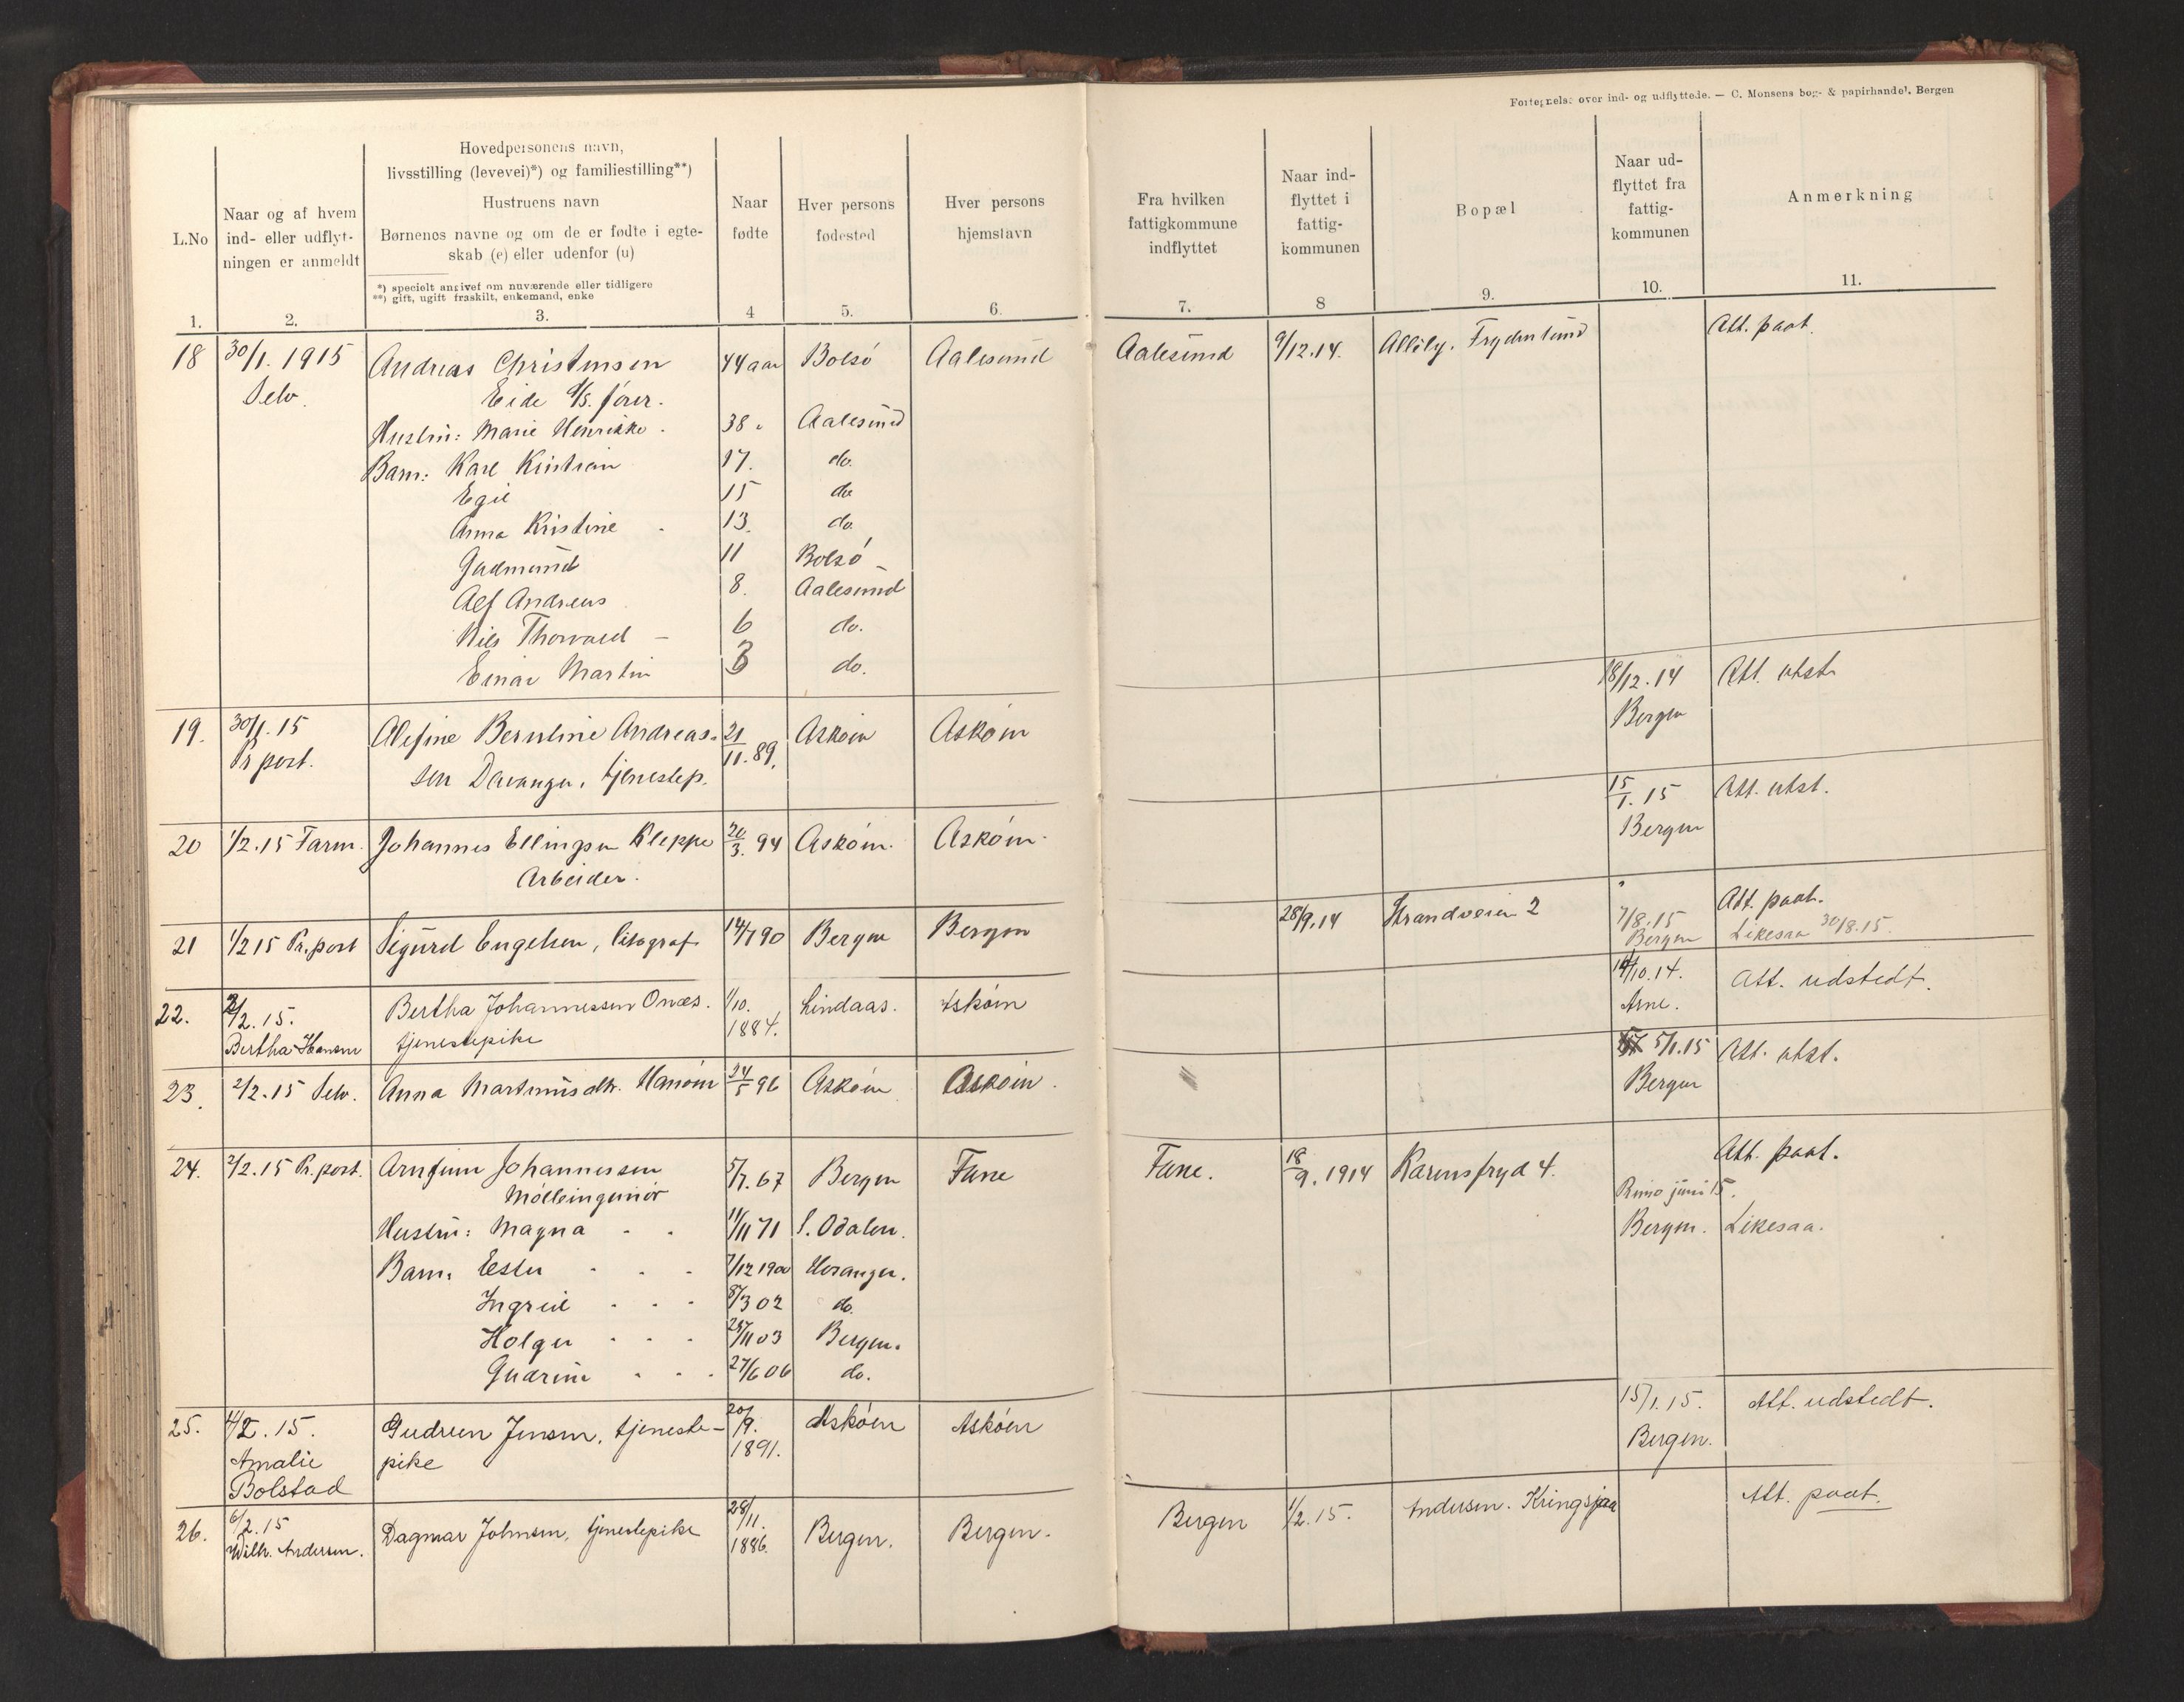 Fortegnelse over ind- og udflyttede. — C. Monsens bog- & papirhandel, Bergen
L.No
Naar og af hvem
ind- eller udflyt-
ningen er anmeldt
Hovedpersonens navn,
livsstilling (levevei)*) og familiestilling**)
Hustruens navn
Børnenes navne og om de er fødte i egte-
skab (e) eller udenfor (u)
*) specielt angivet om nuværende eller tidligere
**) gift, ugift fraskilt, enkemand, enke
Naar
fødte
Hver persons
fødested
Hver persons
hjemstavn
Fra hvilken
fattigkommune
indflyttet
Naar ind-
flyttet i
fattig-
kommunen
Bopæl
Naar ud-
flyttet fra
fattig-
kommunen
Anmerkning
1. 2. 3. 4 5. 6. 7. 8 9. 10. 11.
18 30/1. 1915 Andreas Christensen 44 aar Bolsö Aalesund Aalesund 9/12.14. Frydenlund Att. paat.
Selv. Eide
Hustru: Marie Henrikke. 38 " Aalesund
Barn: Karl Kristian 17. do.
Egil 15 do
Anna Kristine 13. do.
Gudmund 11 Bolsö
Alf Andreas 8. Aalesund
Nils Thorvald — 6 do.
Einar Martin 3 do.
19. 30/1. 15 Alefine Berntine Andreas- 21/11. 89. Asköen Asköen 18/12.14 Att. utst.
Pr post. sen Davanger, tjenestep. Bergen
20 1/2.15 Farm. Johannes Ellingsen Kleppe 20/3. 94 Asköen. Asköen. 15/1. 15 Att. utst.
Arbeider. Bergen
21 1/2 15 Pr. post Sigurd Engelsen, litograf 14/7 90 Bergen Bergen 28/9.14 Strandveien 2 7/8.15 Att. paat.
Bergen Likesaa 30/8.15.
22. 2/2.15. Bertha Johannessen Onæs. 1/10. Lindaas. Asköen 14/10.14. Att. udstedt.
Bertha Hansen tjenestepike 1884. Arne.
23. 2/2.15 Selv. Anna Martinusdtr. Hanöen 24/5 96 Asköen Asköen. 5/1.15 Att. utst.
Bergen
24. 2/2.15 Pr. post. Arnfinn Johannessen 5/7. 67 Bergen Fane Fane. 18/9. 1914 Karensfryd 4. Att. paat.
Mölleingeniör Primo juni 15.
Hustru: Magna 11/11 71 S. Odalen. Bergen. Likesaa.
Barn: Ester 7/12 1900 Hosanger.
Ingrid 8/3 02 do.
Holger 25/11 03 Bergen.
Gudrun 27/6 06 do.
25. 4/2.15. Gudrun Jensen, tjeneste- 20/9. Asköen Asköen 15/1.15. Att. udstedt.
Amalie pike 1891. Bergen.
Bolstad
26. 6/2.15 Dagmar Johnsen, tjenestepike 28/11. Bergen. Bergen. Bergen 1/2.15. Andersen. Kringsjaa Att. paat.
Wilh. Andersen. 1886.